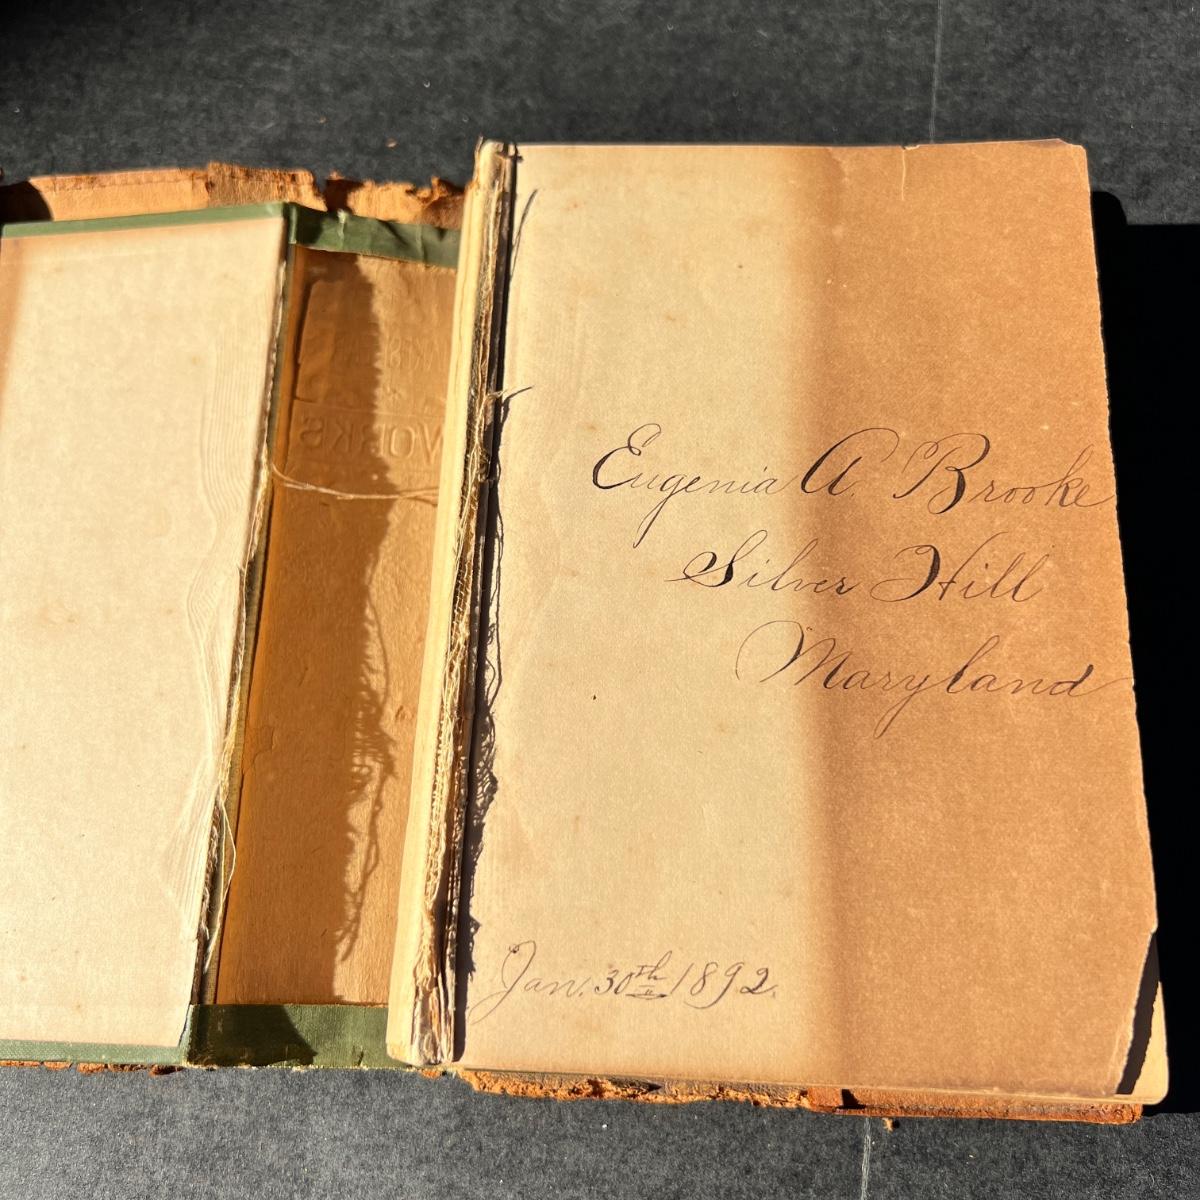 WORKS
Eugenia A. Brooke
Silver Hill
Maryland
Jan. 30th 1892.